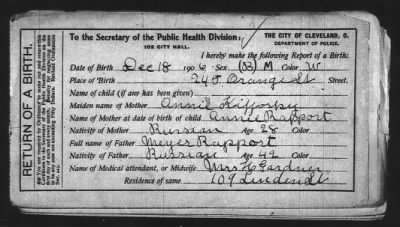 To the Secretary of the Public Health Division: THE CITY OF CLEVELAND, O.
102 CITY HALL. DEPARTMENT OF POLICE.
I hereby make the following Report of a Birth:
Date of Birth Dec 18 1906 Sex (B) M Color W
Place of Birth 245 Orange st Street.
Name of child (if any has been given)
Maiden name of Mother Annie
Name of Mother at date of birth of child Annie Rapport
Nativity of Mother Russian Age 28 Color
Full name of Father Meyer Rapport
Nativity of Father Russian Age 42 Color
Name of Medical attendant, or Midwife Mrs H Gardner
Residence of same 109 Linden St
RETURN OF A BIRTH.